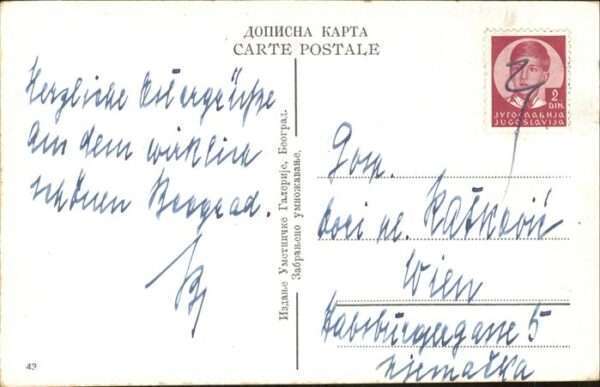 ДОПИСНА КАРТА
CARTE POSTALE
Herzliche Ostergrüsse
aus dem wirklich
schönen Beograd.
2
DIN.
ЈУГОСЛАВИЈА
JUGOSLAVIJA
Gosp.
Ratković
Wien
Habsburgergasse 5
Njemačka
Издање Уметничке Галерије, Београд.
Забрањено умножавање.
42